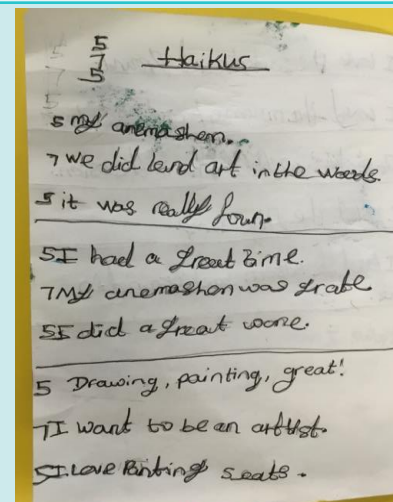 5
7
5
Haikus
5 my anemashon.
7 we did land art in the woods.
5 it was really foun.
5 I had a great time.
7 My anemashon was grate
5 I did a great wone.
5 Drawing, painting, great!
7 I want to be an arttist.
5 I Love Pinting seats.